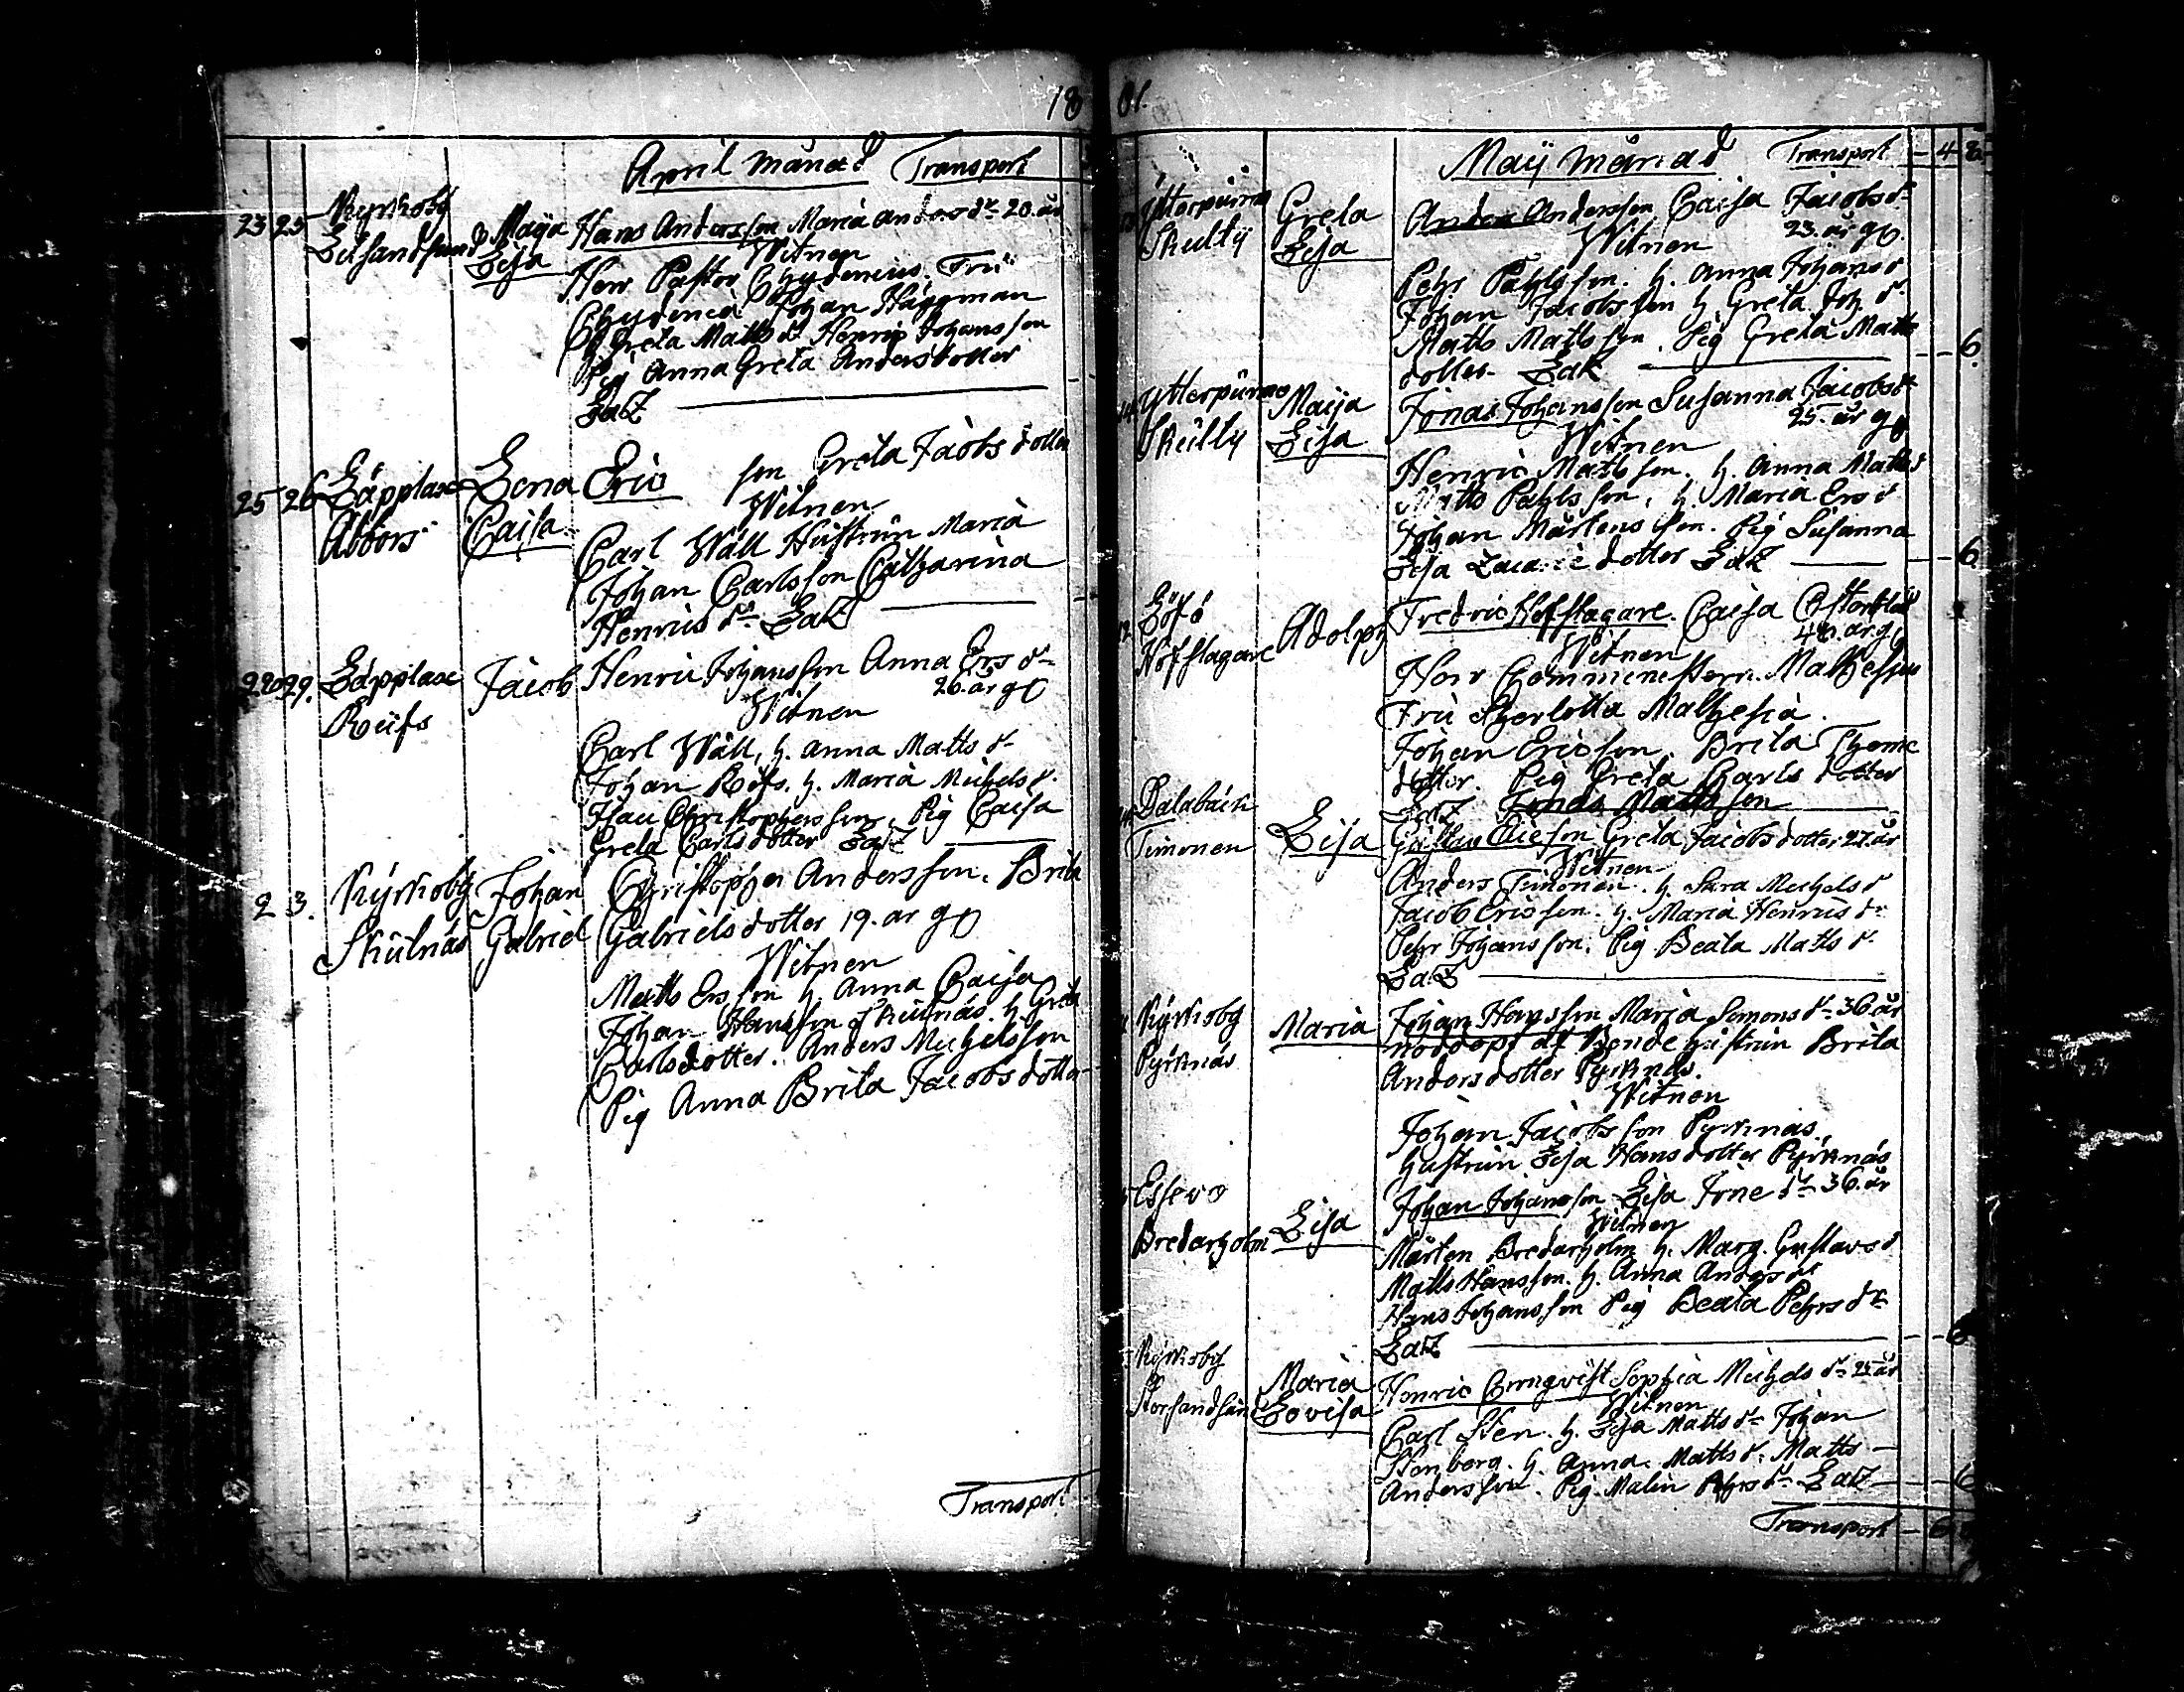 18
April Månad Transport
23 25 Kyrkoby Maija Hans Andersson Maria Anders dr 20. år
Lillsandsund Lisa Witnen
Herr Pastor Chydenius. Fru
Chydenia Johan Häggman
h Greta Matts d. Henric Johansson
Pig Anna Greta Andersdotter
Lax
25 26 Läpplax Lena Eric son Greta Jacobs dotter
Abbors Caisa Witnen
Carl Wäll Hustrun Maria
Johan Carlsson Catharina
Henrics dr Lax
29. Läpplax Jacob Henric Johansson Anna Ers dr
Rüfs 26. år gl
Witnen
Carl Wäll, h. Anna Matts dr
Johan Rüfs. h. Maria Michels d.
Christophersson. Pig Caisa
Greta Carlsdotter Lax
2 3. Kyrkoby Johan Christopher Andersson. Brita
Skutnäs Gabriel Gabrielsdotter 19. år gl
Witnen
Matts Ersson h. Anna Caisa
Johan Hansson Skutnäs. h. Greta
Carlsdotter. Anders Michelsson
Pig Anna Brita Jacobsdotter
Transport
01.
Maij Månad Transport 4
Ytterpurmo Greta Anders Andersson Caisa Jacobs dr
Skutty Lisa 23. år gl.
Witnen
Pehr Pahlsson. h. Anna Johans d
Johan Jacobsson h Greta Joh. d.
Matts Mattsson. Pig Greta Matts
dotter. Lax 6.
Ytterpurmo Maija Jonas Johansson Susanna Jacobs dr
Skutty Lisa 25. år gl
Witnen
Henric Mattsson. h. Anna Matts d
Matts Pahlsson. h. Maria Ers d
Johan Mårtensson. Pig Susanna
Lisa dotter Lax 6
Adolph Fredric Hofslagare. Caisa
Hofslagare år gl
Witnen
Herr Mathesius
Fru Mathesia.
Johan Ericsson. Brita Thome
dotter. Pig Greta Carls dotter
Lax Jonas Mattsson
Dalabäck Lisa Gustav Greta Jacobsdotter 27. år
Timonen Witnen
Anders Timonen. h. Sara Michels d
Jacob Ericsson. h. Maria Henrics dr
Pehr Johansson. Pig Beata Matts dr
Lax
Kyrkoby Maria Johan Hansson Maria Simons dr 36 år
Pyrknäs nöddöpt af Bonde hustrun Brita
Andersdotter Pyrknäs.
Witnen
Johan Jacobsson Pyrknäs
hustrun Lisa Hansdotter Pyrknäs
Esse Lisa Johan Johansson Lisa dr 36. år
Bredarholm Witnen
Mårten Bredarholm h. Marg. Gustavs d
Matts Hansson. h. Anna Anders dr
Hans Johansson Pig Beata Pehrs dr
Lax 6
Kyrkoby Maria Henric Sophia Michels dr 25 år
Storsandsund Lovisa Witnen
Carl Sten. h. Lisa Matts dr Johan
Stenborg. h. Anna Matts d. Matts
Andersson. Pig Malin Pehrs dr Lax 6
Transport 6